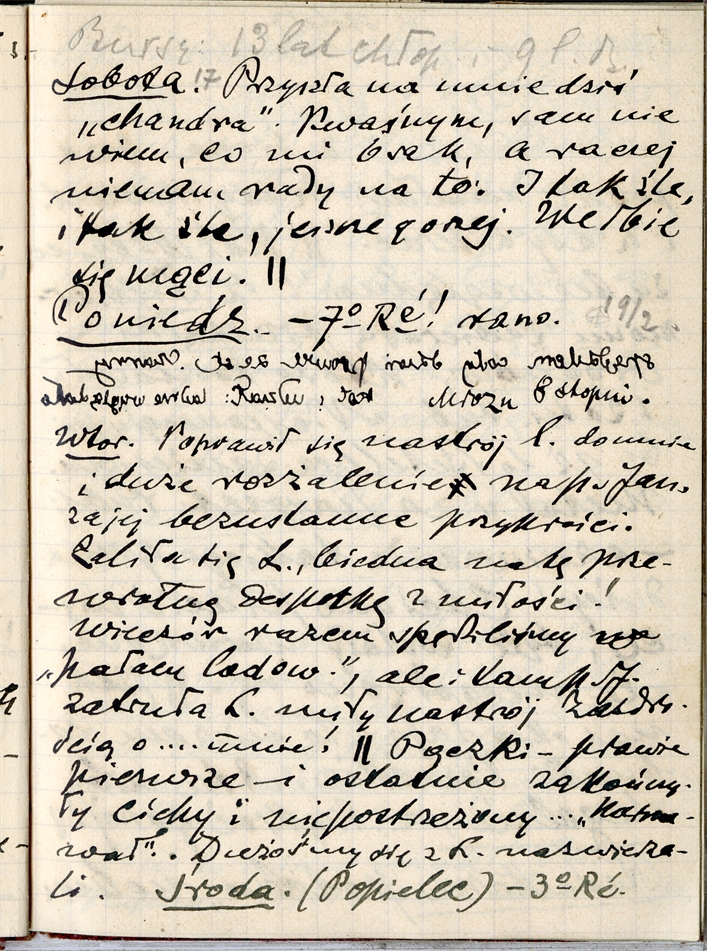 Bursy: 13 lat chłop. - 9 l. dz.
Sobota! 17 Przyszła na mnie dziś
„chandra". Kwaśnym, sam nie
wiem, co mi brak, a raczej
niemam rady na to. I tak źle,
i tak źle, jeszcze gorzej. We łbie
się mąci. ||
Poniedz. -7º Ré! rano. 19/2
spędziłem cały dzień
Mrozu 8 stopni.
Wtor. Poprawił się nastrój L. do mnie
i duże rozżalenie na p. Jan.
za jej bezustanne przykrości.
Żaliła się L., biedna na tę prze-
wrotną despotkę z miłości!
Wieczór razem spędziliśmy w
„pałacu lodow.", ale i tam p. J.
zatruła L. miły nastrój zazdro-
ścią o .... mnie! || Pączki - prawie
pierwsze - i ostatnie zakończy-
ły cichy i niepostrzeżony... „Karna-
wał". Dużośmy się z L. nazwierza-
li. Środa. (Popielec) -3º Ré.